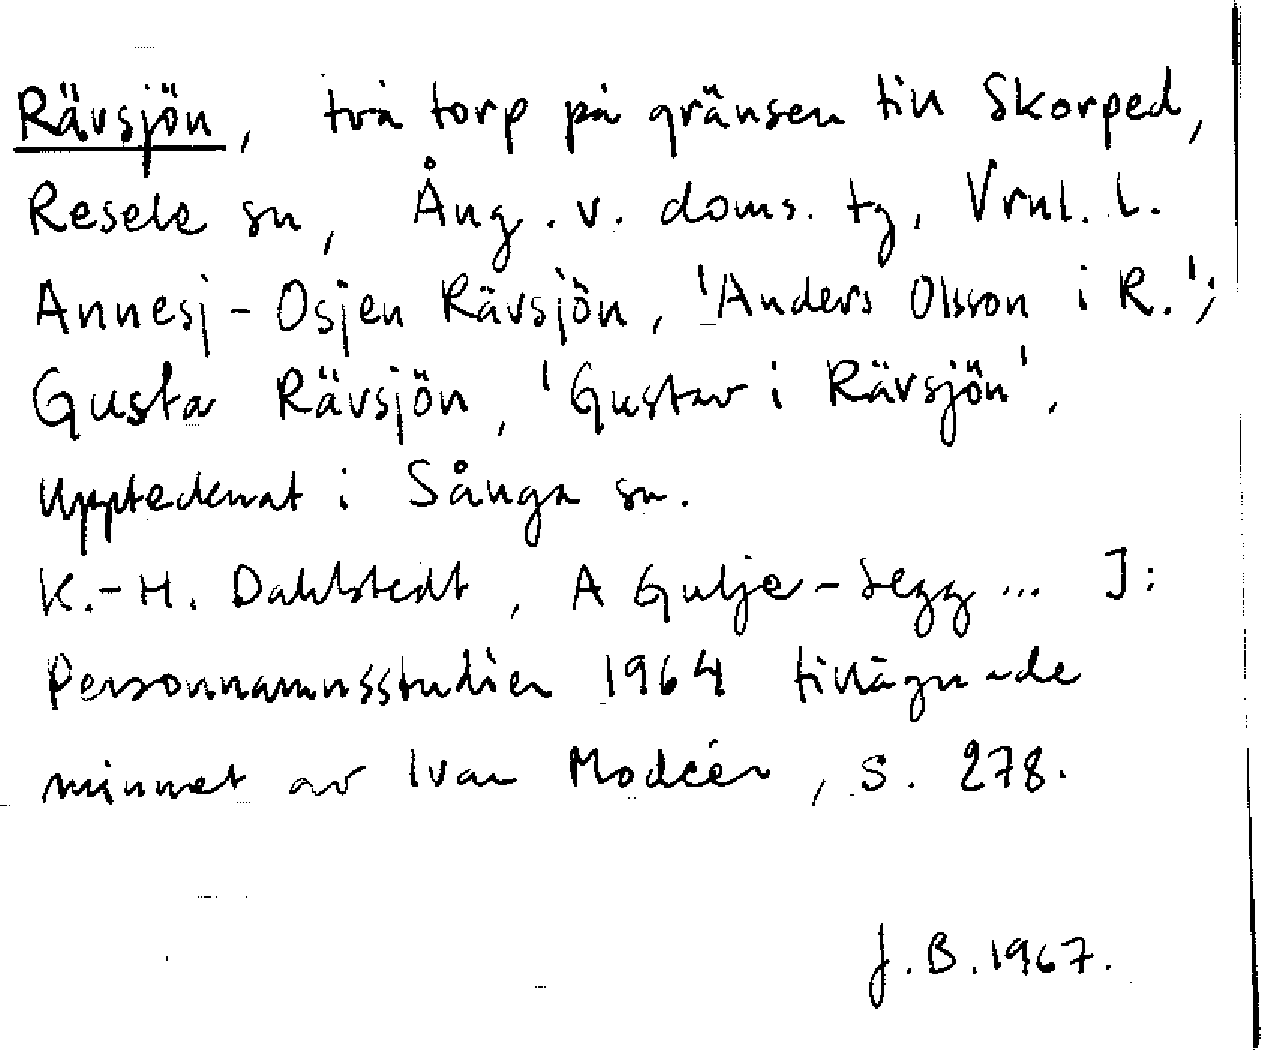 Rävsjön, två torp på gränsen till Skorped,
Resele sn, Ång. v. doms. tg, Vrnl. l.
Annesj-Osjen Rävsjön, 'Anders Olsson i R.';
Gusta Rävsjön, 'Gustav i Rävsjön',
upptecknat i Sånga sn.
K.-H. Dahlstedt, A Gulje-Segg ... I:
Personnamnsstudier 1964 tillägnade
minnet av Ivar Modéer, s. 278.
J.B. 1967.